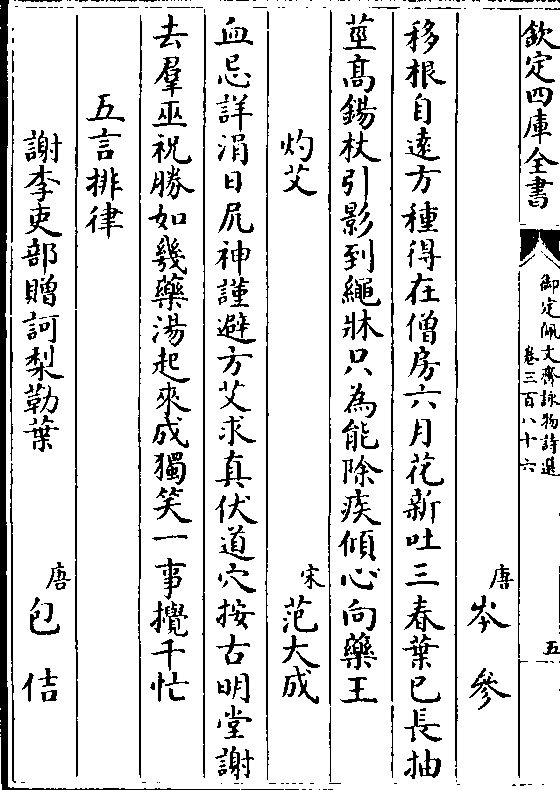 欽定四庫全書
御定佩文齋詠物詩選
卷三百八十六
五
唐 岑參
移根自遠方種得在僧房六月花新吐三春葉已長抽
莖高錫杖引影到繩牀只為能除疾傾心向藥王
灼艾
宋 范大成
血忌詳涓日尻神謹避方艾求真伏道穴按古明堂謝
去羣巫祝勝如幾藥湯起來成獨笑一事攪千忙
五言排律
謝李吏部贈訶梨勒葉
唐 包佶